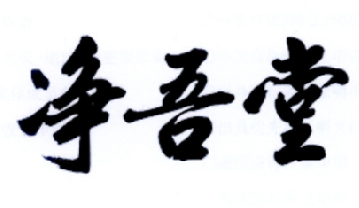 净吾堂